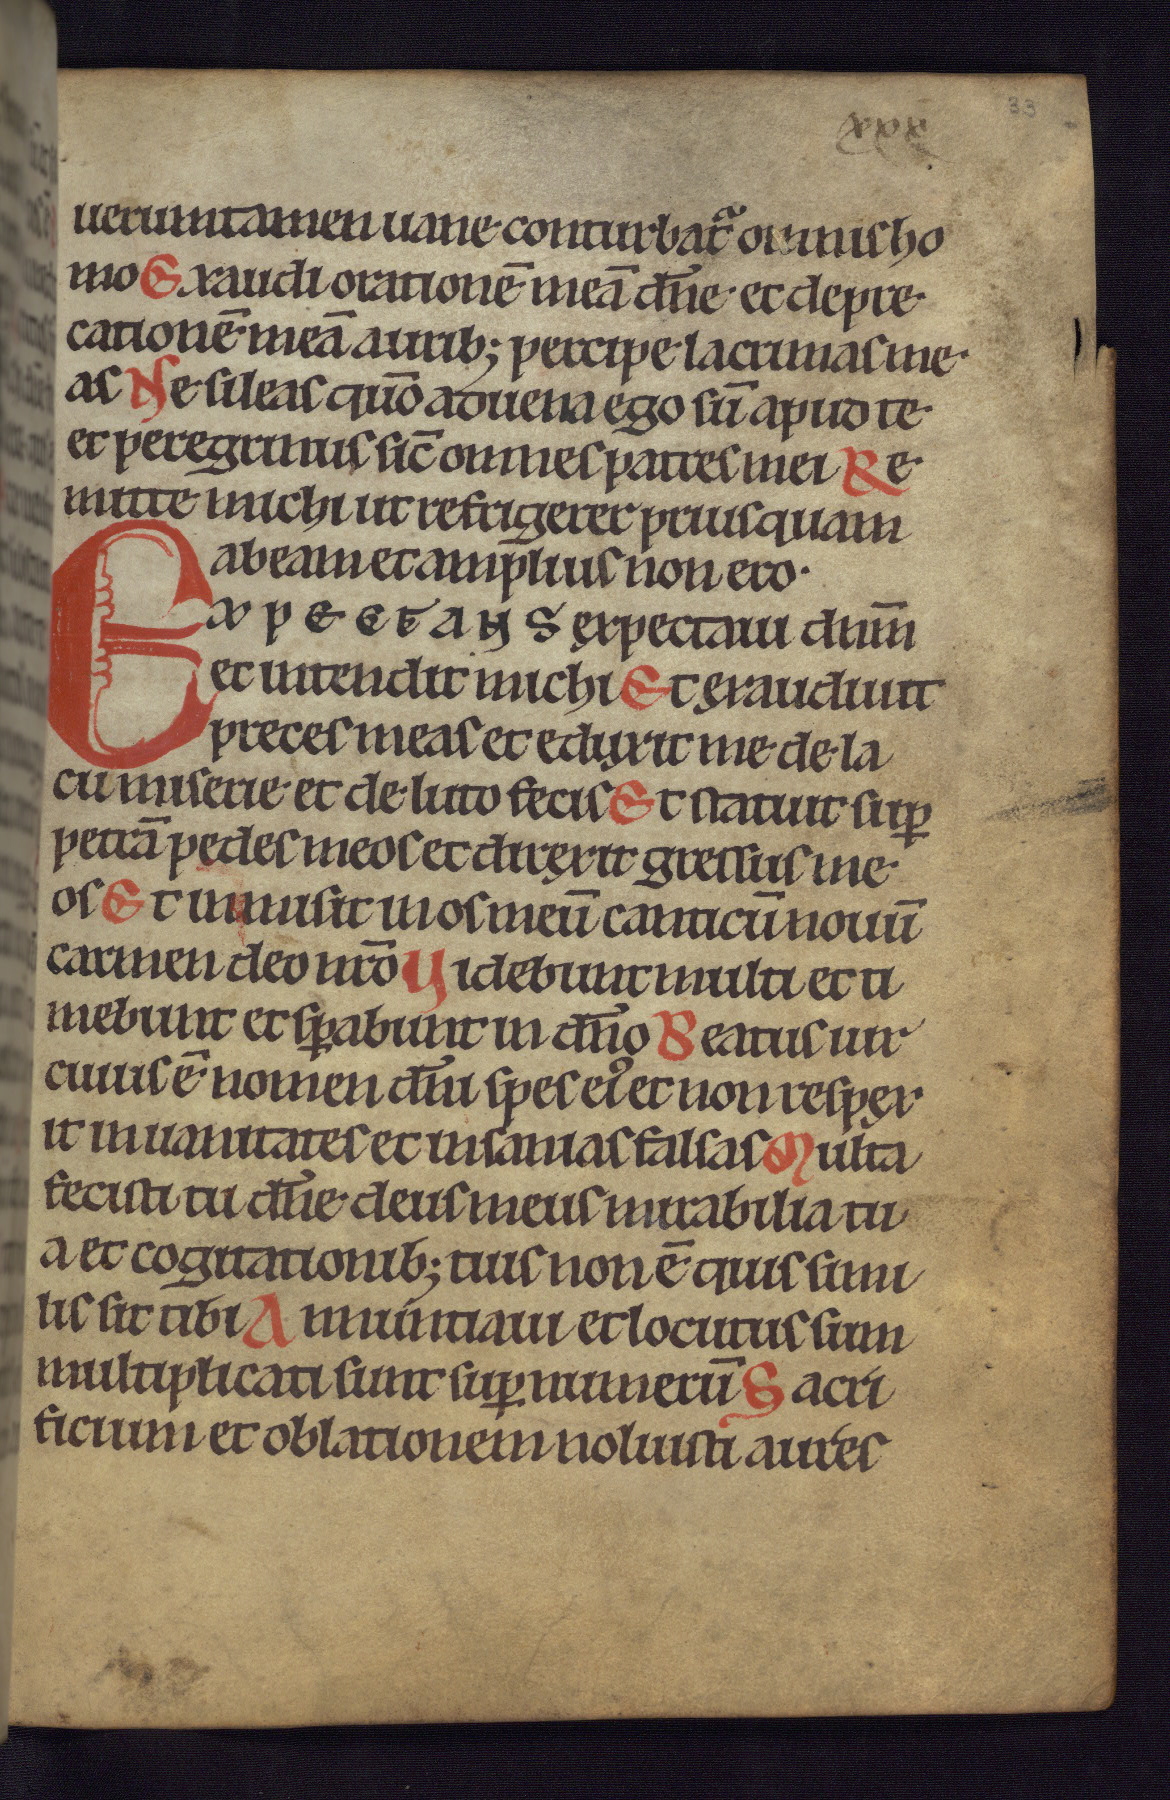 33
xxx
uerumtamen uane conturbat᷑ omnis ho
mo Exaudi orationē meā dn̄e et depre
cationē meā aurib; percipe lacrimas me
as Ne sileas qūo aduena ego sū apud te
et peregrinus sic̄ omnes patres mei Re
mitte michi ut refrigerer priusquam
abeam et amplius non ero.
Expectans expectaui dnm̄
et intendit michi Et exaudiuit
preces meas et eduxit me de la
cu miserie et de luto fecis Et statuit suꝑ
petrā pedes meos et direxit gressus me
os Et inmisit in os meū canticū nouū
carmen deo nr̄o Uidebunt multi et ti
mebunt et sꝑabunt in dn̄o Beatus uir
cuius ē nomen dn̄i spes eiꝰ et non respex
it in uanitates et insanias falsas Multa
fecisti tu dn̄e deus meus mirabilia tu
a et cogitationib; tuis non ē quis simi
lis sit tibi Annuntiaui et locutus sum
multiplicati sunt suꝑ numerū Sacri
ficium et oblationem noluisti aures